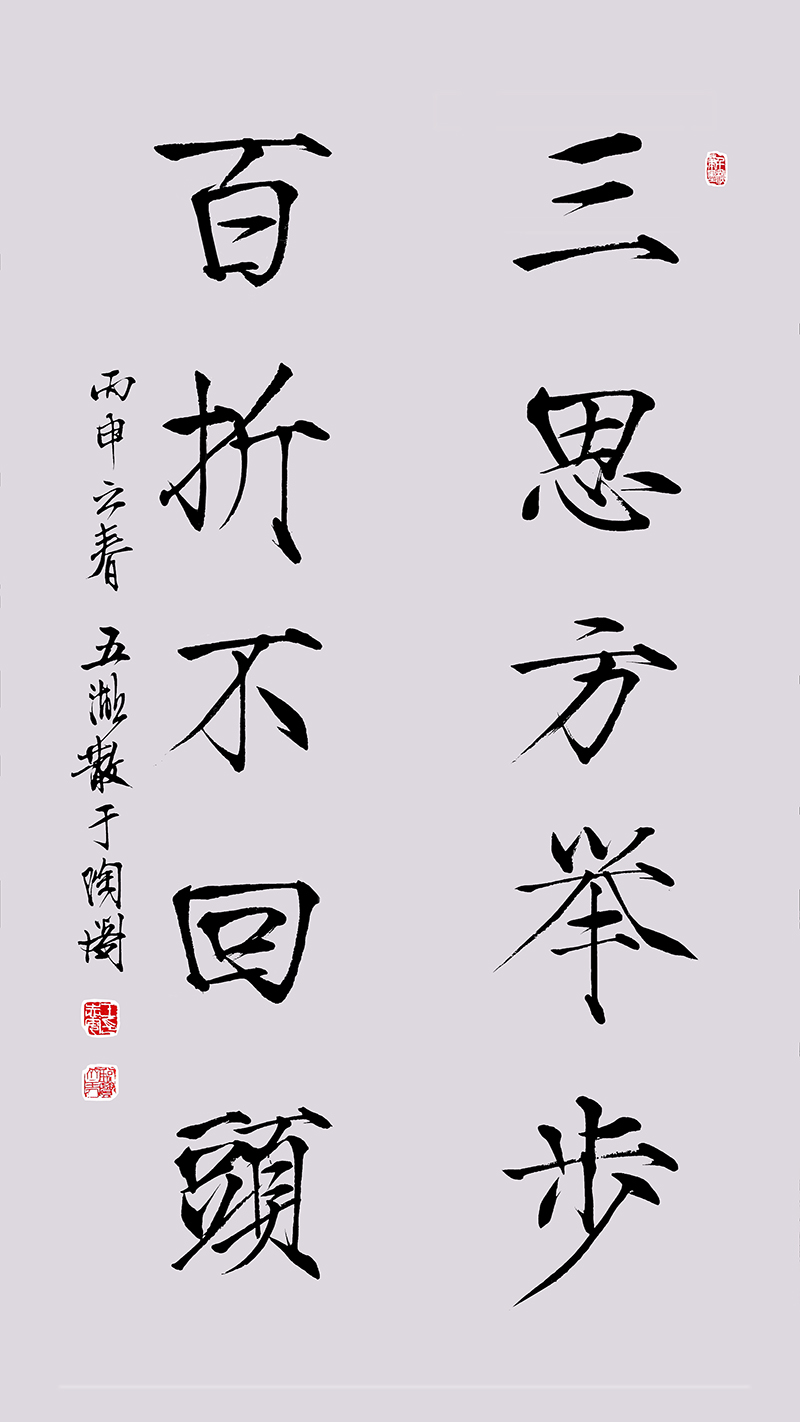 三思方举步
百折不回頭
丙申立春 五湖散于陶阁